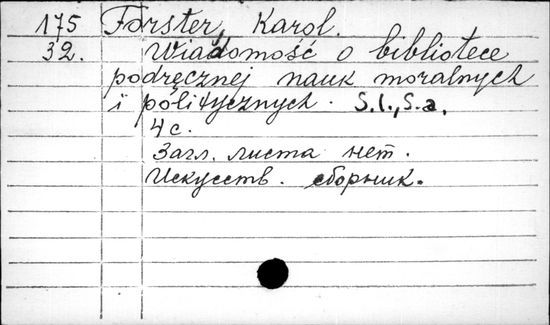 175 Forster, Karol.
32. Wiadomość o bibliotece
podręcznej nauk moralnych
i politycznych. S.l., S.a.
4 с.
Загл. листа нет.
Искусств. сборник.